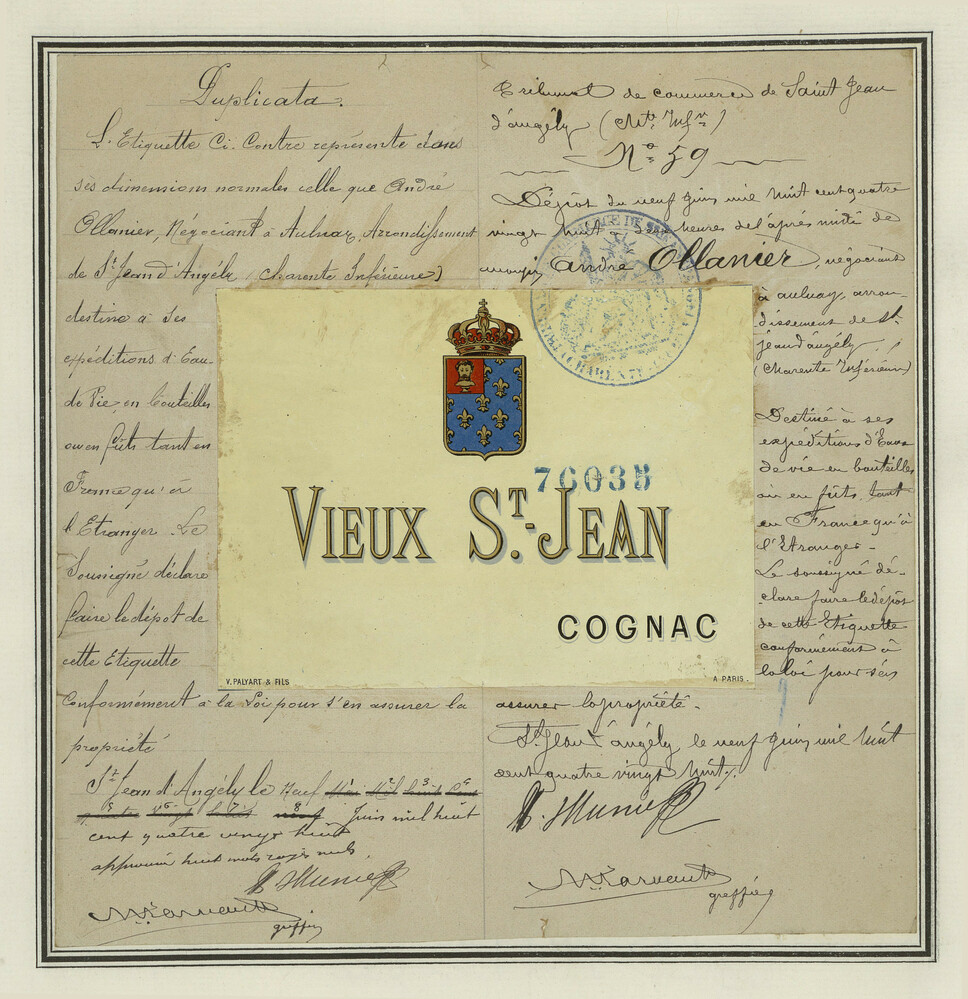 Duplicata.
L'Etiquette Ci. Contre représente dans
ses dimensions normales celle que André
Ollanier, Négociant à Aulnay, Arrondissement
de St Jean d'Angély (Charente Inférieure)
destine à ses
expéditions d'Eau-
de Vie, en bouteilles
ou en fûts tant en
France qu'à
l'Etranger. Le
Soussigné déclare
faire le dépot de
cette Etiquette
Conformément à la Loi pour s'en assurer la
propriété
St Jean d'Angély le Neuf
Juin mil huit
cent quatre vingt huit
approuvé huit mots rayés nuls.
greffier
Tribunal de commerce de Saint Jean
d'angély
No 59
Dépôt du neuf juin mil huit cent quatre
vingt huit heures de l'après midi de
André Ollanier, négociant
à aulnay, arron-
dissement de St
jean d'angély
(Charente Inférieure)
Destiné à ses
expéditions d'Eaux
de vie en bouteilles
ou en fûts tant
en France qu'à
l'Etranger-
Le soussigné dé-
clare faire le dépôt
de cette Etiquette
conformément à
la loi pour s'en
assurer la propriété.
St Jean d'angély le neuf juin mil huit
cent quatre vingt huit.
greffier
76035
VIEUX ST.-JEAN
COGNAC
V. PALYART & FILS
A PARIS.